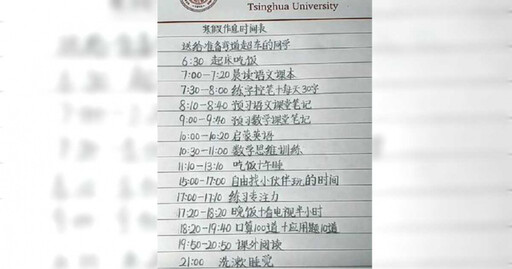 Tsinghua University
寒假作息时间表
送给准备弯道超车的同学
6:30 起床吃饭
7:00-7:20晨读语文课本
7:30-8:00 练字控笔+每天30字
8:10-8:40 预习语文课堂笔记
9:00-9:40 预习数学课堂笔记
10:00-10:20 启蒙英语
10:30-11:00 数学思维训练
11:10-13:10 吃饭+午睡
15:00-17:00 自由找小伙伴玩的时间
17:00-17:10 练习专注力
17:20-18:20 晚饭+看电视半小时
18:20-19:40 口算100道+应用题10道
19:50-20:50 课外阅读
21:00 洗漱睡觉